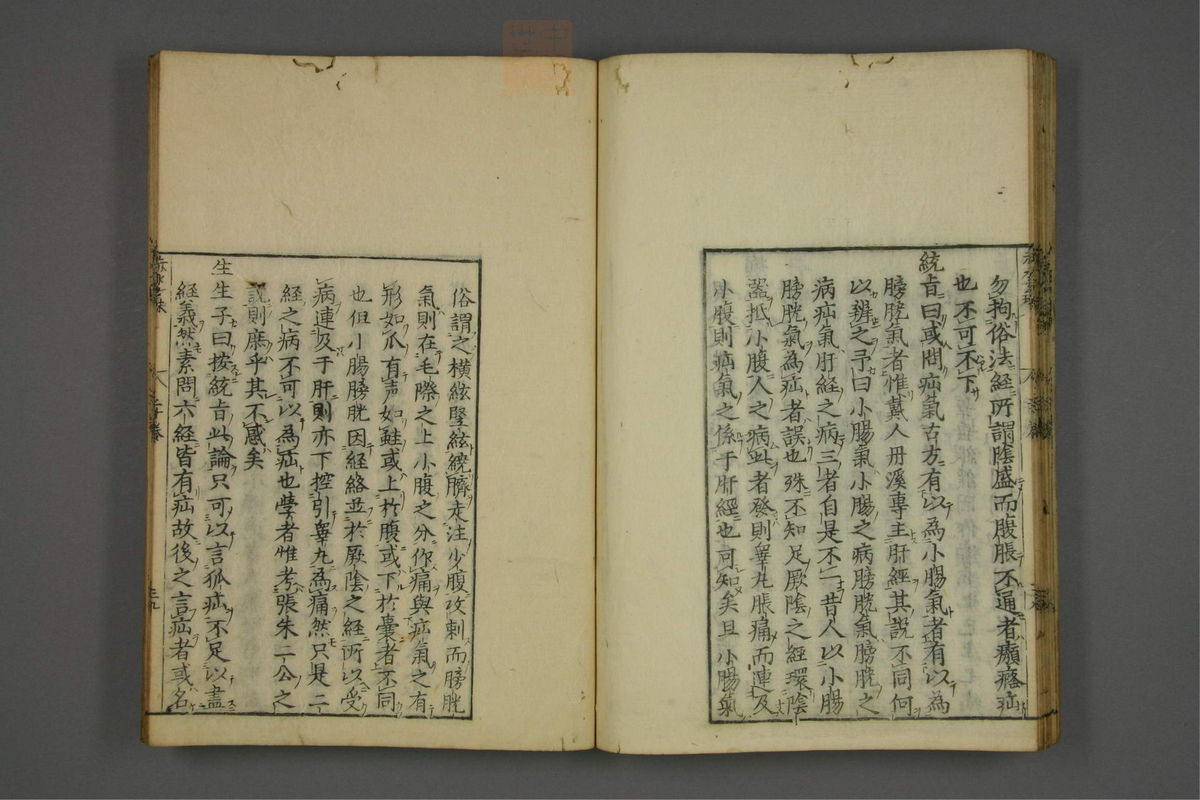 勿拘俗法経所謂陰盛而腹脹不通者癲癃疝
也不可不下
統旨曰或問疝氣古方有以為小腸氣者有以為
膀胱氣者惟戴人丹溪專主肝經其說不同何
以辨之予曰小腸氣小腸之病膀胱氣膀胱之
病疝氣肝經之病三者自是不一昔人以小腸
膀胱氣為疝者誤也殊不知足厥陰之經環陰
器抵小腹人之病此者發則睾丸脹痛而連及
小腹則疝氣之係于肝經也可知矣且小腸氣
俗謂之橫絃竪絃繞臍走注少腹攻刺而膀胱
氣則在毛際之上小腹之分作痛與疝氣之有
形如瓜有声如蛙或上於腹或下於囊者不同
也但小腸膀胱因経絡並於厥陰之経所以受
病連及于肝則亦下控引睾丸為痛然只是二
経之病不可以為疝也學者惟考張朱二公之
說則庶乎其不惑矣
生生子曰按統旨此論只可以言狐疝不足以盡
経義然素問六経皆有疝故後之言疝者或名